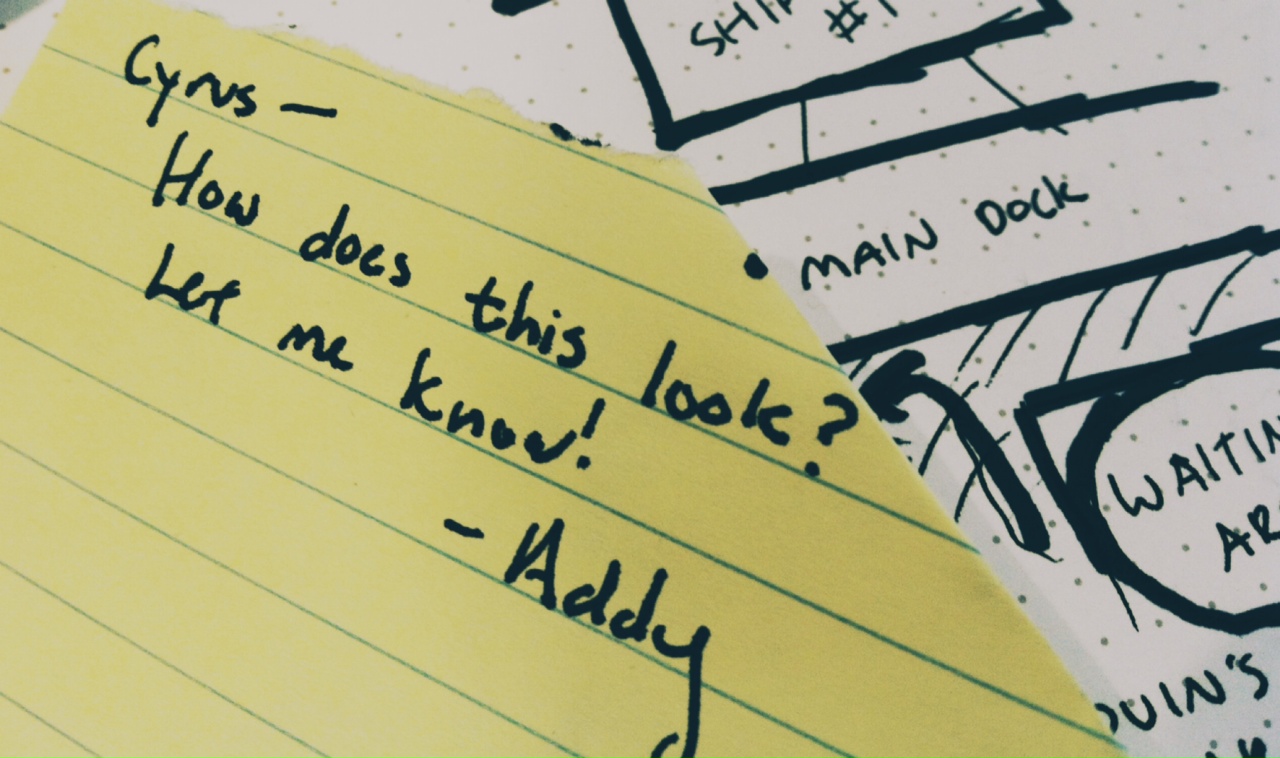 Cyrus —
How does this look?
Let me know!
- Addy
#1
MAIN DOCK
WAITIN
AR